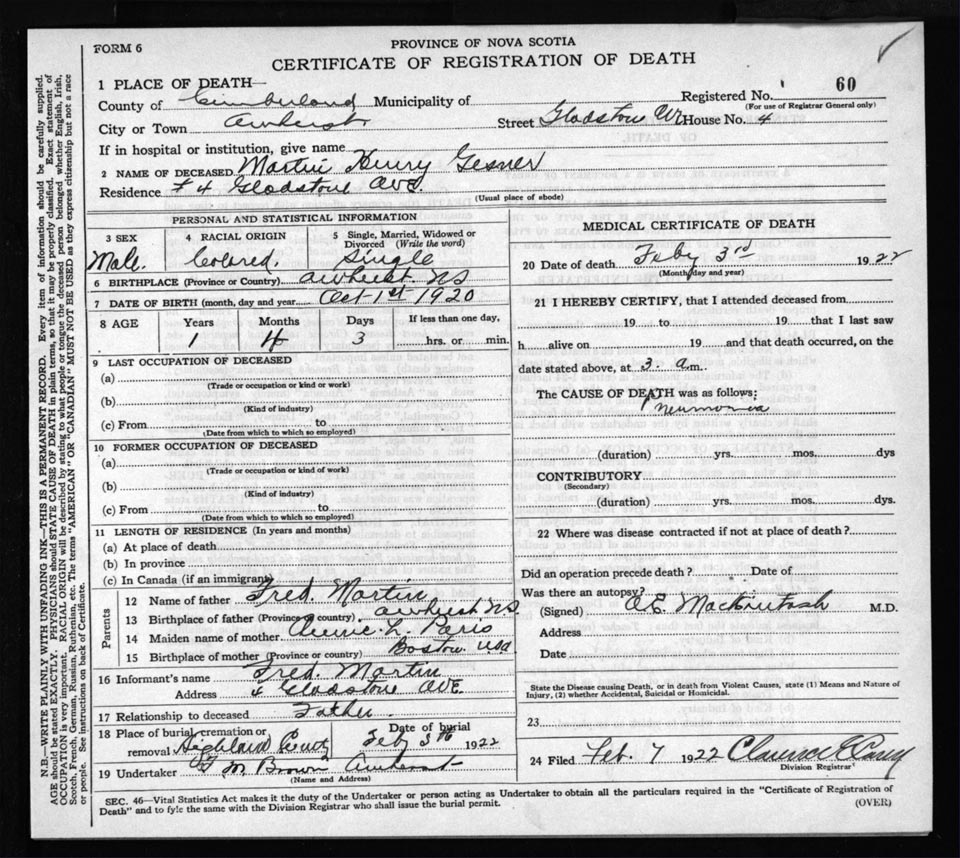 FORM 6
PROVINCE OF NOVA SCOTIA
CERTIFICATE OF REGISTRATION OF DEATH
1 PLACE OF DEATH—
Registered No. 60
(For use of Registrar General only)
County of Cumberland Municipality of
City or Town Amherst Street Gladstone House No. 4
If in hospital or institution, give name
2 NAME OF DECEASED Martin Henry Gesner
Residence # 4 Gladstone Ave.
(Usual place of abode)
PERSONAL AND STATISTICAL INFORMATION
3 SEX
Male.
4 RACIAL ORIGIN
Colered.
5 Single, Married, Widowed or Divorced (Write the word)
Single
6 BIRTHPLACE (Province or Country) Amherst. NS
7 DATE OF BIRTH (month, day and year) Oct-1st 1920
8 AGE Years Months Days If less than one day,
1 4 3 hrs. or min.
9 LAST OCCUPATION OF DECEASED
(a)
(Trade or occupation or kind of work)
(b)
(Kind of industry)
(c) From to
(Date from which to which so employed)
10 FORMER OCCUPATION OF DECEASED
(a)
(Trade or occupation or kind of work)
(b)
(Kind of industry)
(c) From to
(Date from which to which so employed)
11 LENGTH OF RESIDENCE (In years and months)
(a) At place of death
(b) In province
(c) In Canada (if an immigrant)
Parents
12 Name of father Fred. Martin
13 Birthplace of father (Province or country) Amherst NS
14 Maiden name of mother L. Paris
15 Birthplace of mother (Province or country) Boston USA
16 Informant's name Fred. Martin
Address 4 Gladstone Ave.
17 Relationship to deceased Father
18 Place of burial, cremation or removal Highland Date of burial Feby 5th 1922
19 Undertaker Brown Amherst
(Name and Address)
MEDICAL CERTIFICATE OF DEATH
20 Date of death Feby 3rd 1922
(Month, day and year)
21 I HEREBY CERTIFY, that I attended deceased from
19 to 19 that I last saw
h alive on 19 and that death occurred, on the
date stated above, at 3. a.m.
The CAUSE OF DEATH was as follows:
Pneumonia
(duration) yrs. mos. dys
CONTRIBUTORY
(Secondary)
(duration) yrs. mos. dys.
22 Where was disease contracted if not at place of death?
Did an operation precede death? Date of
Was there an autopsy?
(Signed) Mackintosh M.D.
Address
Date
State the Disease causing Death, or in death from Violent Causes, state (1) Means and Nature of
Injury, (2) whether Accidental, Suicidal or Homicidal.
23
24 Filed Feb. 7 1922 Clarence
Division Registrar
SEC. 46—Vital Statistics Act makes it the duty of the Undertaker or person acting as Undertaker to obtain all the particulars required in the "Certificate of Registration of
Death" and to fyle the same with the Division Registrar who shall issue the burial permit.
(OVER)
N.B.—WRITE PLAINLY WITH UNFADING INK—THIS IS A PERMANENT RECORD. Every item of information should be carefully supplied.
AGE should be stated EXACTLY. PHYSICIANS should STATE CAUSE OF DEATH in plain terms, so that it may be properly classified. Exact statement of
OCCUPATION is very important. RACIAL ORIGIN will be described by stating to what people or tongue the deceased person belonged whether English, Irish,
Scotch, French, German, Russian, Ruthenian, etc. The terms "AMERICAN" OR "CANADIAN" MUST NOT BE USED as they express citizenship but not a race
or people. See instructions on back of Certificate.